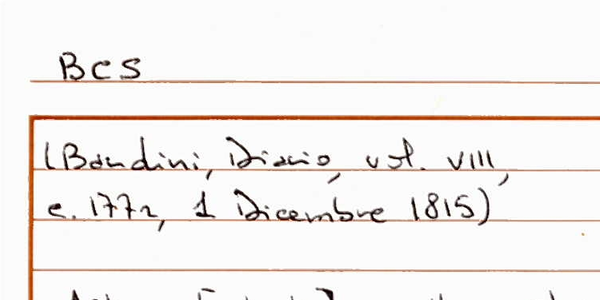 BCS
(Bandini, Diario, vol. VIII,
c. 177r, 1 Dicembre 1815)